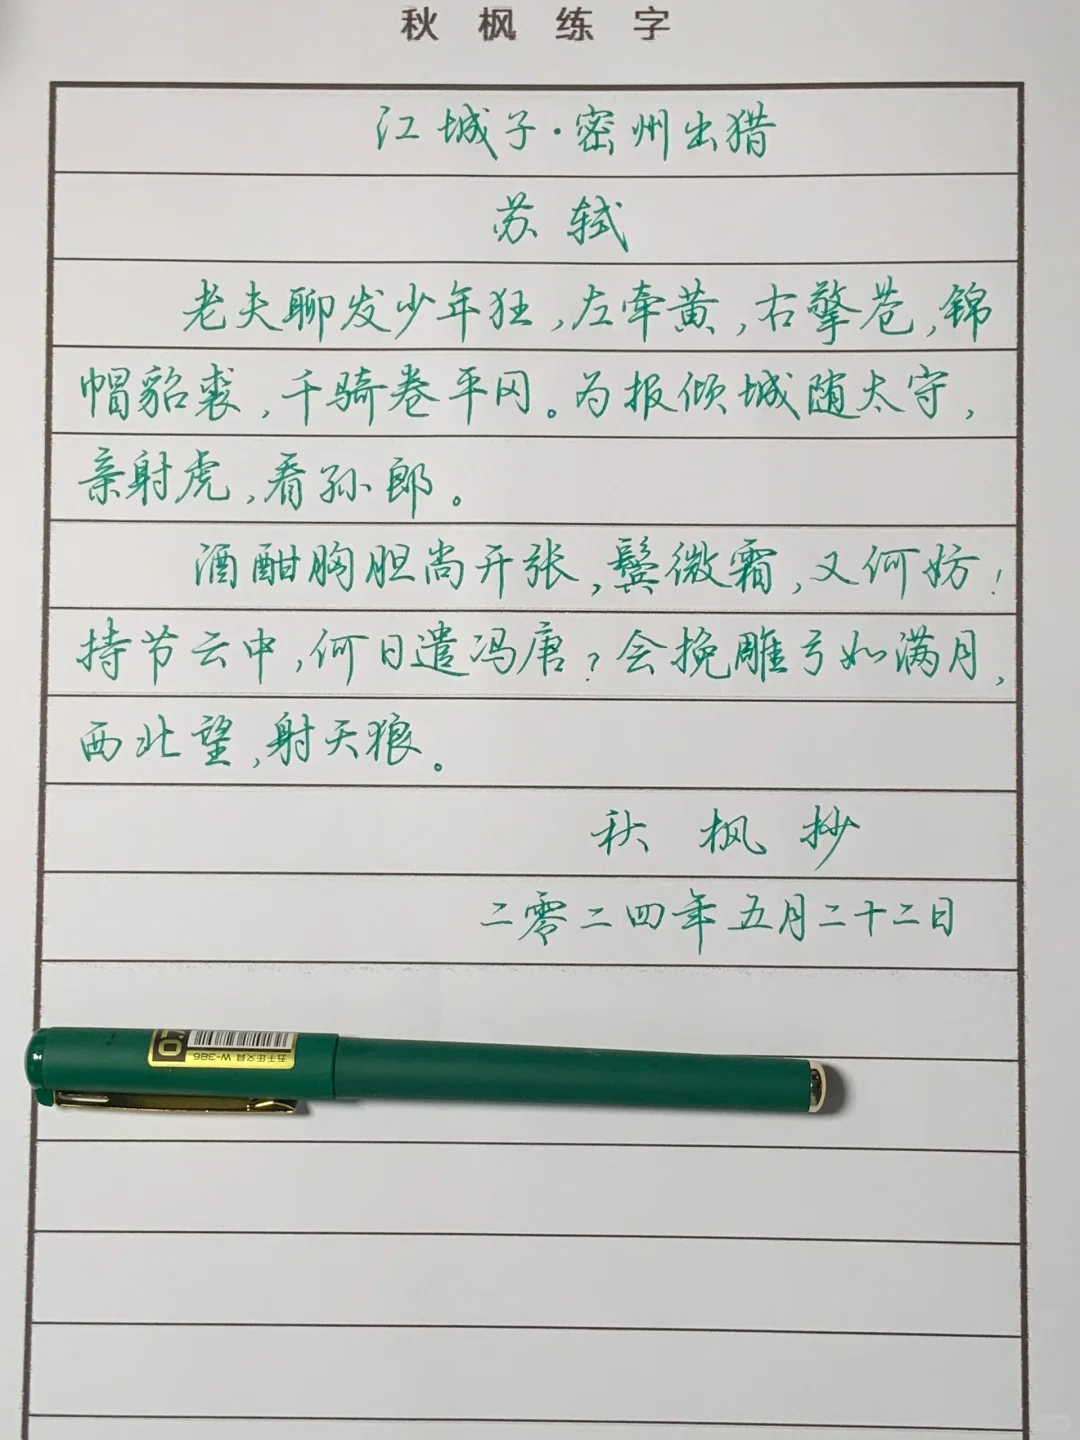 秋枫练字
江城子·密州出猎
苏轼
老夫聊发少年狂,左牵黄,右擎苍,锦
帽貂裘,千骑卷平冈。为报倾城随太守,
亲射虎,看孙郎。
酒酣胸胆尚开张,鬓微霜,又何妨!
持节云中,何日遣冯唐?会挽雕弓如满月,
西北望,射天狼。
秋枫抄
二零二四年五月二十二日
五千年文具 W-386